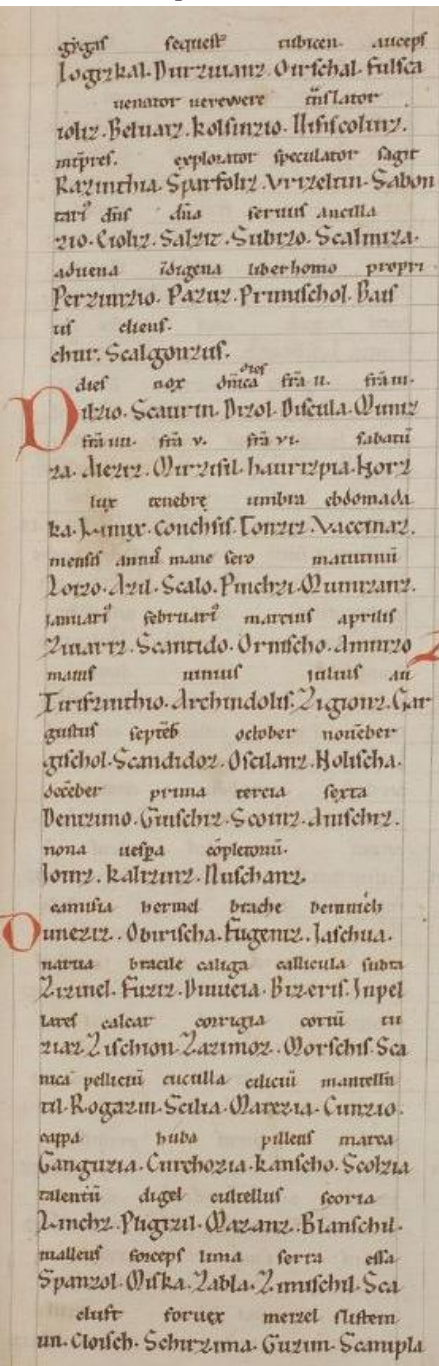 gygas sequest tubicen. auceps
Logizkal. Durziianz. Oirschal. Fulsca
uenator uerewere tnslator
toliz. Beluaiz. kolsinzio. Nisiscolinz.
intpres. explorator speculator sagit
Razinthia. Sparfoliz. Vrizeltin. Sabon
tari dns dna seruus ancilla
zio. Cioliz. Salziz. Subizo. Scalmiza.
aduena idigena liber homo propri
Perzunzio. Pazuz. Primischol. Baus
us cliens.
chur. Scalgonzus.
dies nox dnica dies fria ii. fria iii.
Dilzio. Scaurin. Dizol. Discula. Muniz
fria iiii. fria v. fria vi. sabatu
za. Aieziz. Mirzisil. haurizpia. Korz
lux tenebre umbra ebdomada
ka. Limix. Conchsis. Tonziz. Vaccinaz.
mensis annus mane sero matutinu
Loizo. Azil. Scalo. Pinchzi. Munizanz.
januari februari marcius aprilis
Ziuariz. Scantido. Ornischo. Amnizo
maius iunius julius au
Tiriszinthio. Archindolis. Zigionz. Gar
gustus septeb october noueber
gischol. Scandidoz. Oscilanz.Holischa.
deceber prima tercia sexta
Denizimo. Giuschiz. Scoinz. Anischiz.
nona uespa copletoriu.
Joinz. kalizinz. Nuschanz.
camisia hermel brache beininch
Duneziz. Obirischa. Fugeniz. Jaschua.
bracile caliga callicula subta
Zizimel. Fuziz. Dinucia. Bizeris. Inpel
lares calcar corrigia coriu tu
ziaz. Zischion. Zazimoz. Morschis. Sca
nica pelliciu cuculla ciliciu mantellu
til. Rogazin. Scilia. Marezia. Cunzio.
cappa huba pilleus matea
Ganguzia. Curchozia. kanscho. Scolzia
talentu digel cultellus scoria
Linchz. Pligizil. Mazanz. Blanschil.
malleus forceps lima serra essa
Spanzol. Miska. Zabla. Zimischil. Sca
cluft foruex meizel slistein
un. Cloisch. Schirzima. Guzim. Scampla